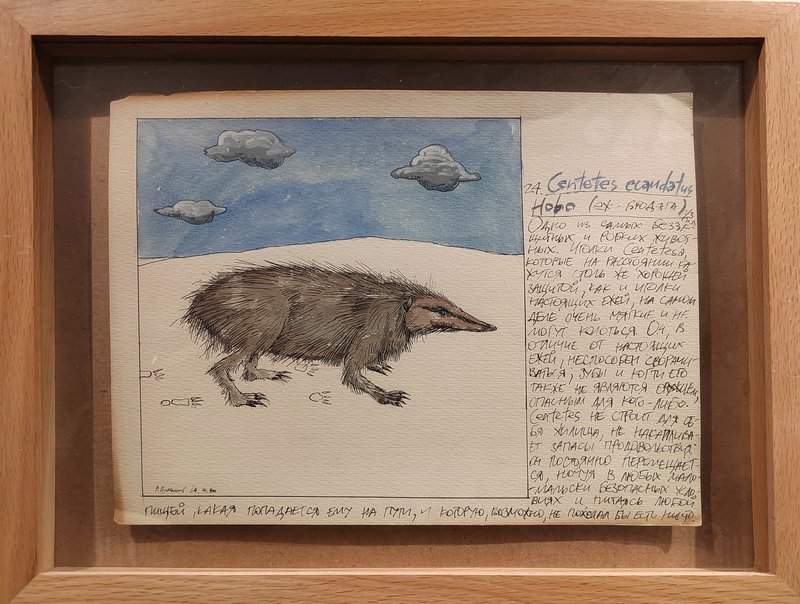 24. Centetes ecaudatus
Нова (ёж-бродяга)
Одно из самых безза-
щитных и робких живот-
ных. Иголки Centetesa,
которые на расстоянии ка-
жутся столь же хорошей
защитой, как и иголки
настоящих ежей, на самом
деле очень мягкие и не
могут колоться. Он, в
отличие от настоящих
ежей, неспособен сворачи-
ваться, зубы и когти его
также не являются оружием,
опасным для кого-либо.
Centetes не строит для се-
бя жилища, не накаплива-
ет запасы продовольствия.
Он постоянно перемещает-
ся, ночуя в любых мало-
мальски безопасных усло-
виях и питаясь любой
пищей, какая попадается ему на пути, и которую, возможно, не пожелал бы есть никто.